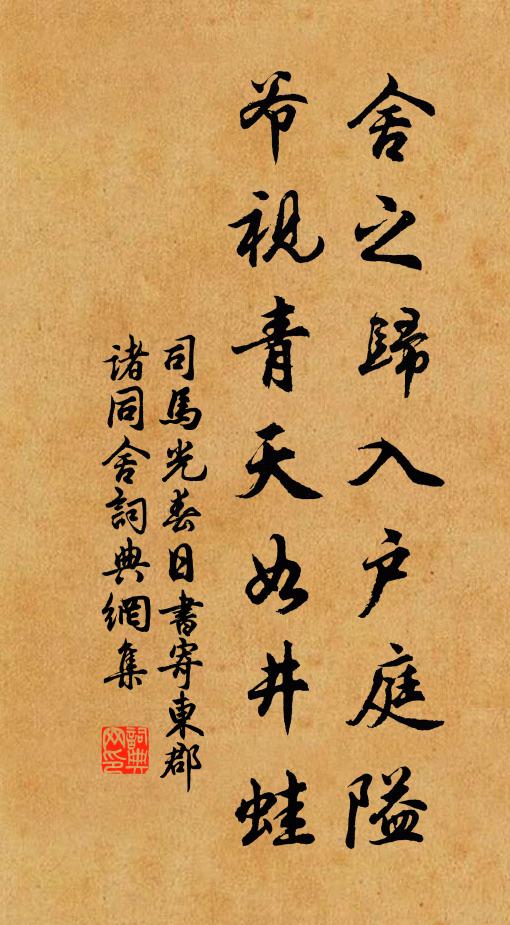 舍之歸入户庭隘
爷視青天如井蛙
司馬光春日書寄東郡
諸同舍詞典網集
詞典網印